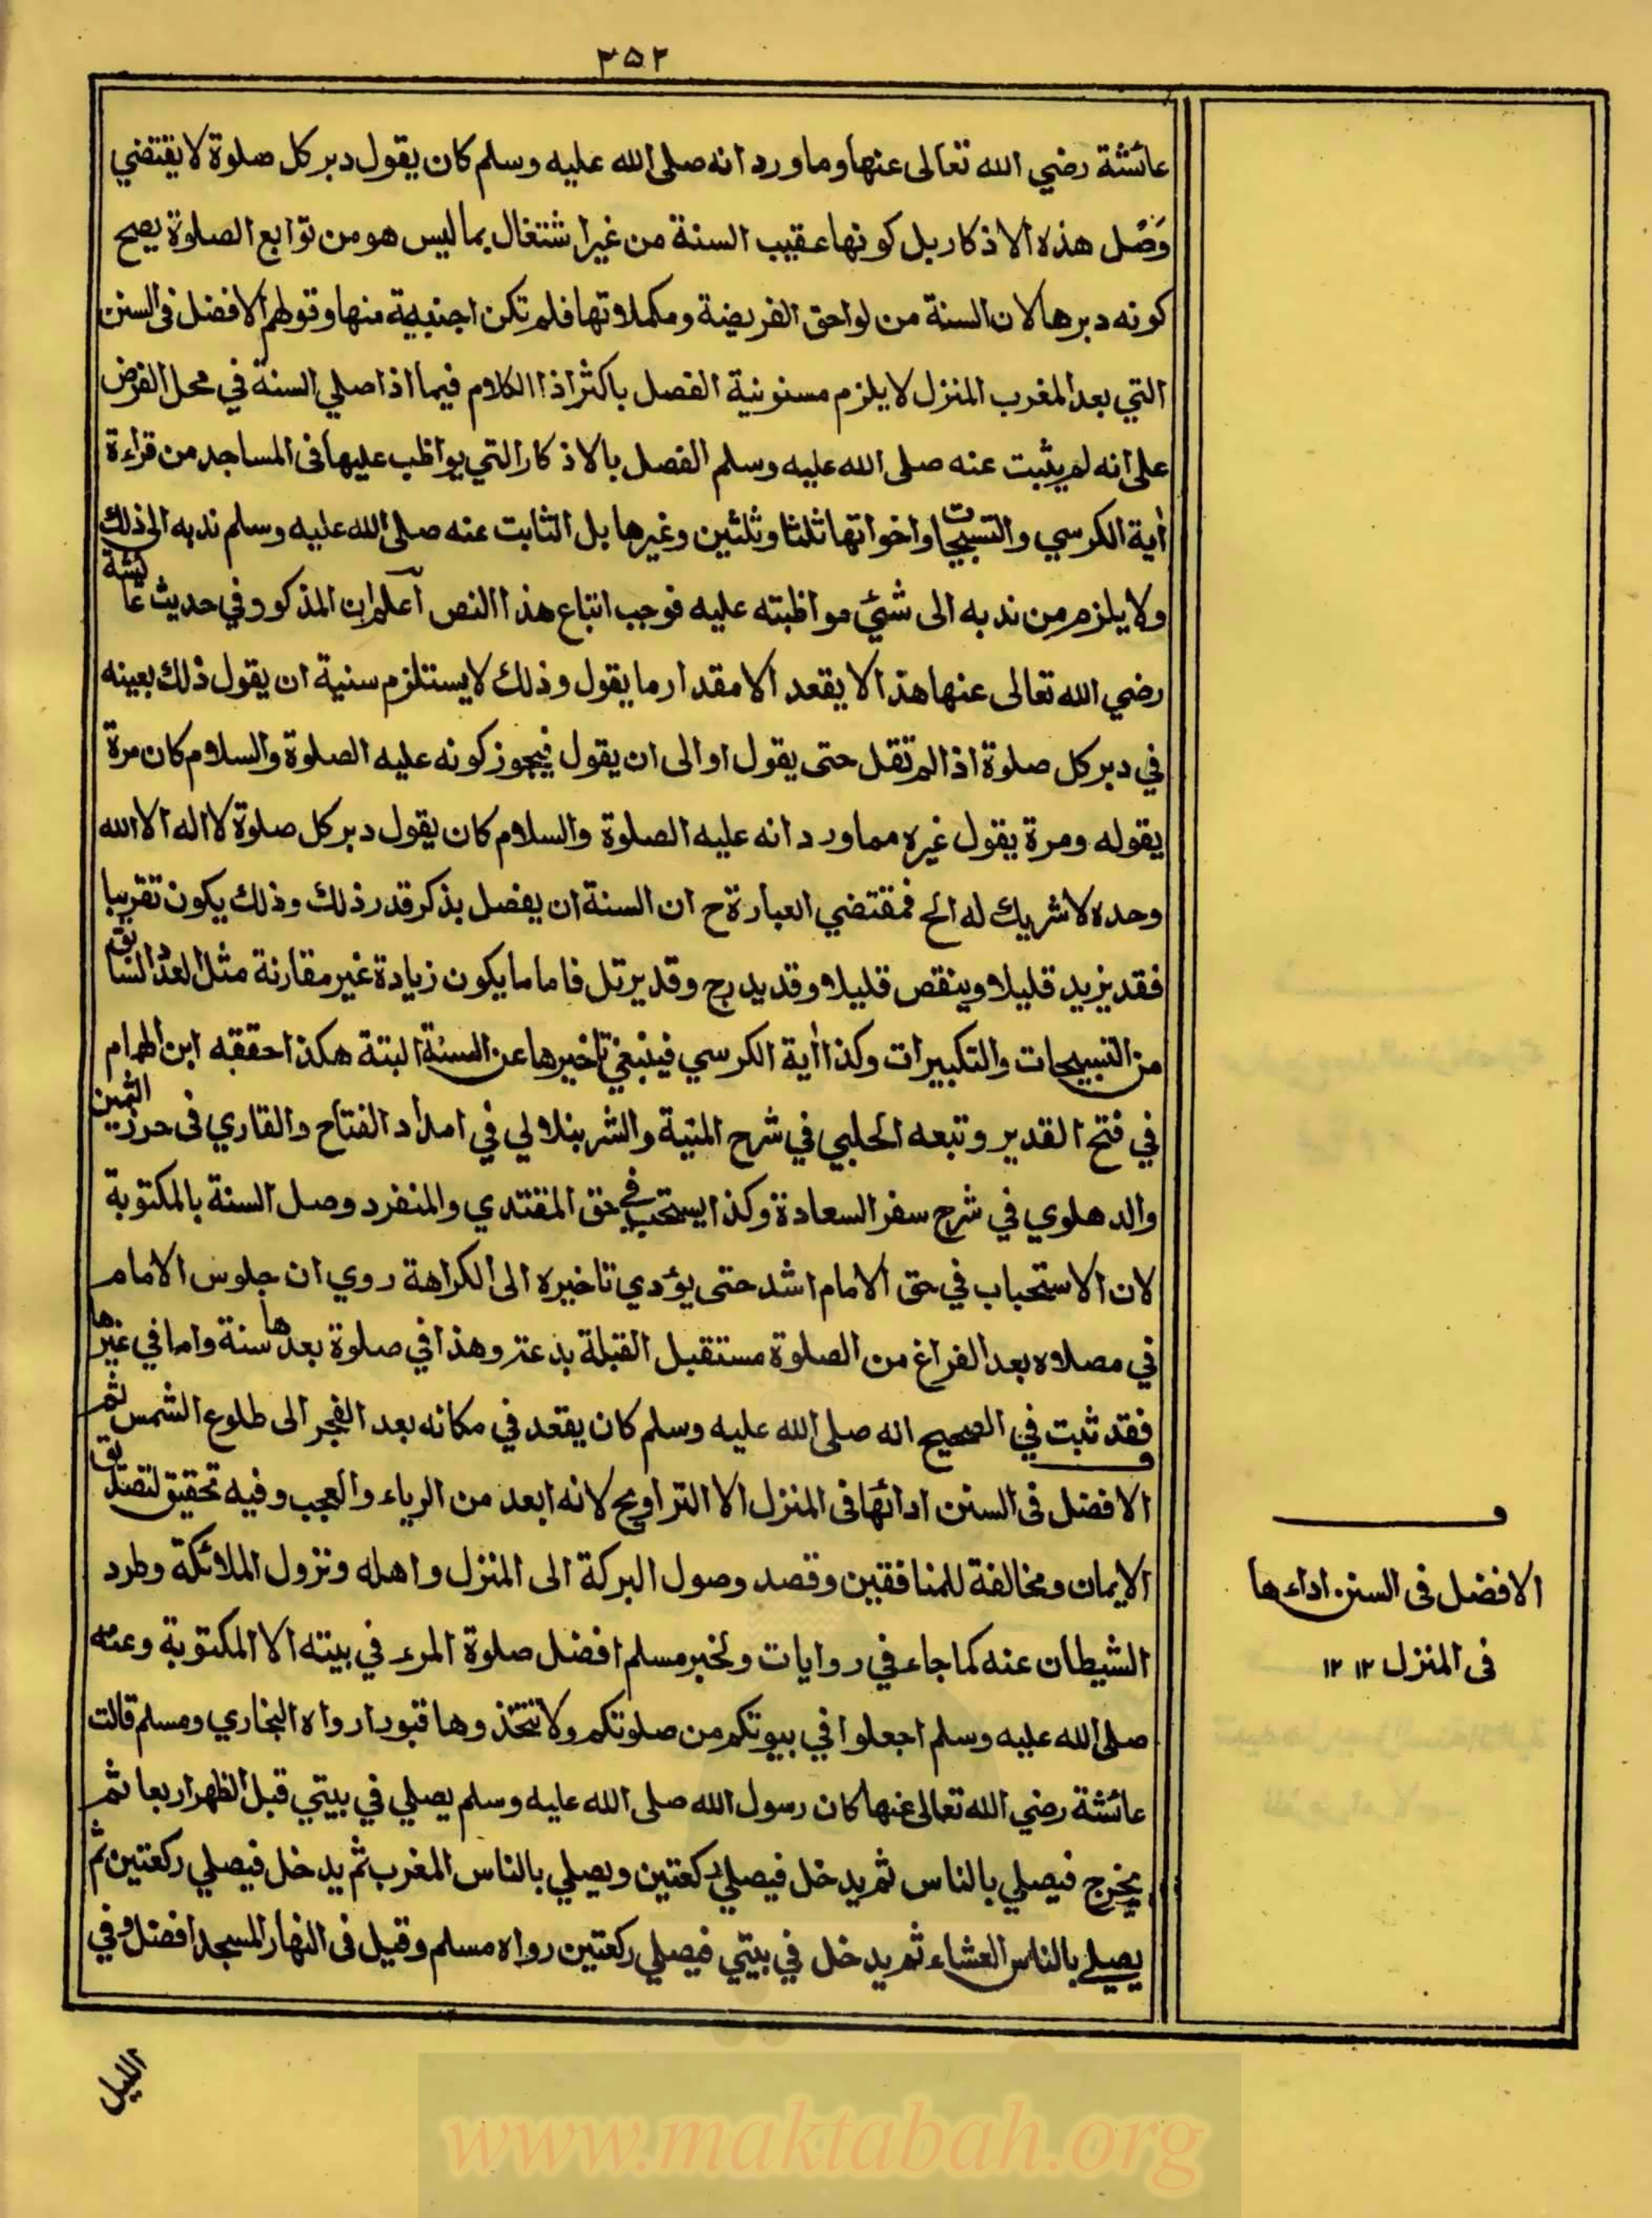 ٣٥٢
عائشة رضي الله تعالى عنها وما ورد انه صلى الله عليه وسلم كان يقول دبر كل صلوة لا يقتضي
وَصْل هذه الاذكار بل كونها عقيب السنة من غير اشتغال بما ليس هو من توابع الصلوة يصح
كونه دبرها لان السنة من لواحق الفريضة ومكملاتها فلم تكن اجنبية منها وقولهم الافضل فى السنن
التي بعد المغرب المنزل لا يلزم مسنونية الفصل باكثر اذا الكلام فيما اذا صلي السنة في محل الفرض
على انه لم يثبت عنه صلى الله عليه وسلم الفصل بالاذكار التي يواظب عليها فى المساجد من قراءة
أية الكرسي والتسبيحات واخواتها ثلثا وثلثين وغيرها بل الثابت عنه صلى الله عليه وسلم ندبه الى ذلك
ولا يلزم من ندبه الى شئي مواظبته عليه فوجب اتباع هذا النص آعلم ان المذكور في حديث عائشة
رضي الله تعالى عنها هذا لا يقعد الا مقدار ما يقول وذلك لا يستلزم سنية ان يقول ذلك بعينه
في دبر كل صلوة اذا لم تقل حتى يقول او الى ان يقول فيجوز كونه عليه الصلوة والسلام كان مرة
يقوله ومرة يقول غيره مما ورد انه عليه الصلوة والسلام كان يقول دبر كل صلوة لا اله الا الله
وحده لا شريك له الخ فمقتضي العبارة ح ان السنة ان يفصل بذكر قدر ذلك وذلك يكون تقريبا
فقد يزيد قليلا وينقص قليلا وقد يدرج وقد يرتل فاما ما يكون زيادة غير مقارنة مثل العدد السابق
من التسبيحات والتكبيرات وكذا أية الكرسي فينبغي تاخيرها عن السنة البتة هكذا حققه ابن الهمام
في فتح القدير وتبعه الحلبي في شرح المنية والشرنبلالي في امداد الفتاح والقاري فى حرز الثمين
والدهلوي في شرح سفر السعادة وكذا يستحب في حق المقتدي والمنفرد وصل السنة بالمكتوبة
لان الاستحباب في حق الامام اشد حتى يؤدي تاخيره الى الكراهة روي ان جلوس الامام
في مصلاه بعد الفراغ من الصلوة مستقبل القبلة بدعة وهذا في صلوة بعدها سنة واما في غيرها
فقد ثبت في الصحيح انه صلى الله عليه وسلم كان يقعد في مكانه بعد الفجر الى طلوع الشمس ثم
الافضل فى السنن ادائها فى المنزل الا التراويح لانه ابعد من الرياء والعجب وفيه تحقيق لتصديق
الايمان ومخالفة للمنافقين وقصد وصول البركة الى المنزل واهله ونزول الملائكة وطرد
الشيطان عنه كما جاء في روايات ولخبر مسلم افضل صلوة المرء في بيته الا المكتوبة وعنه
صلى الله عليه وسلم اجعلوا في بيوتكم من صلوتكم ولا تتخذوها قبورا رواه البخاري ومسلم قالت
عائشة رضي الله تعالى عنها كان رسول الله صلى الله عليه وسلم يصلي في بيتي قبل الظهر اربعا ثم
يخرج فيصلي بالناس ثم يدخل فيصلي ركعتين ويصلي بالناس المغرب ثم يدخل فيصلي ركعتين ثم
يصلے بالناس العشاء ثم يدخل في بيتي فيصلي ركعتين رواه مسلم وقيل فى النهار المسجد افضل وفي
الافضل فى السنن اداءها
فى المنزل ١٢ ١٢
الليل
www.maktabah.org